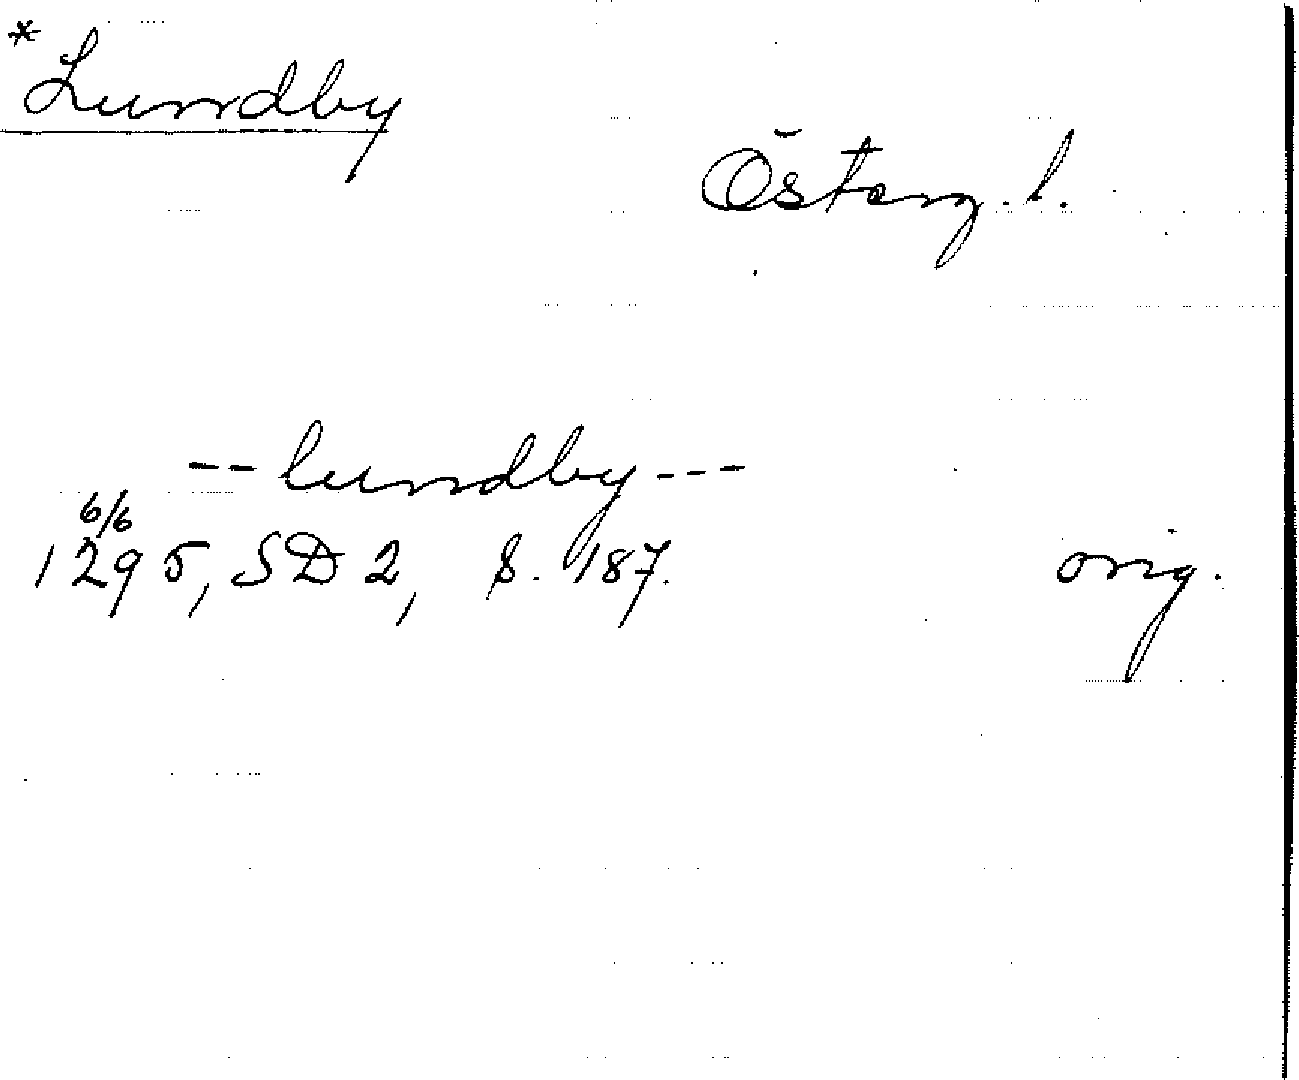 * Lundby
Österg. l.
-- lundby ---
6/6
1295, SD 2, s. 187. orig.